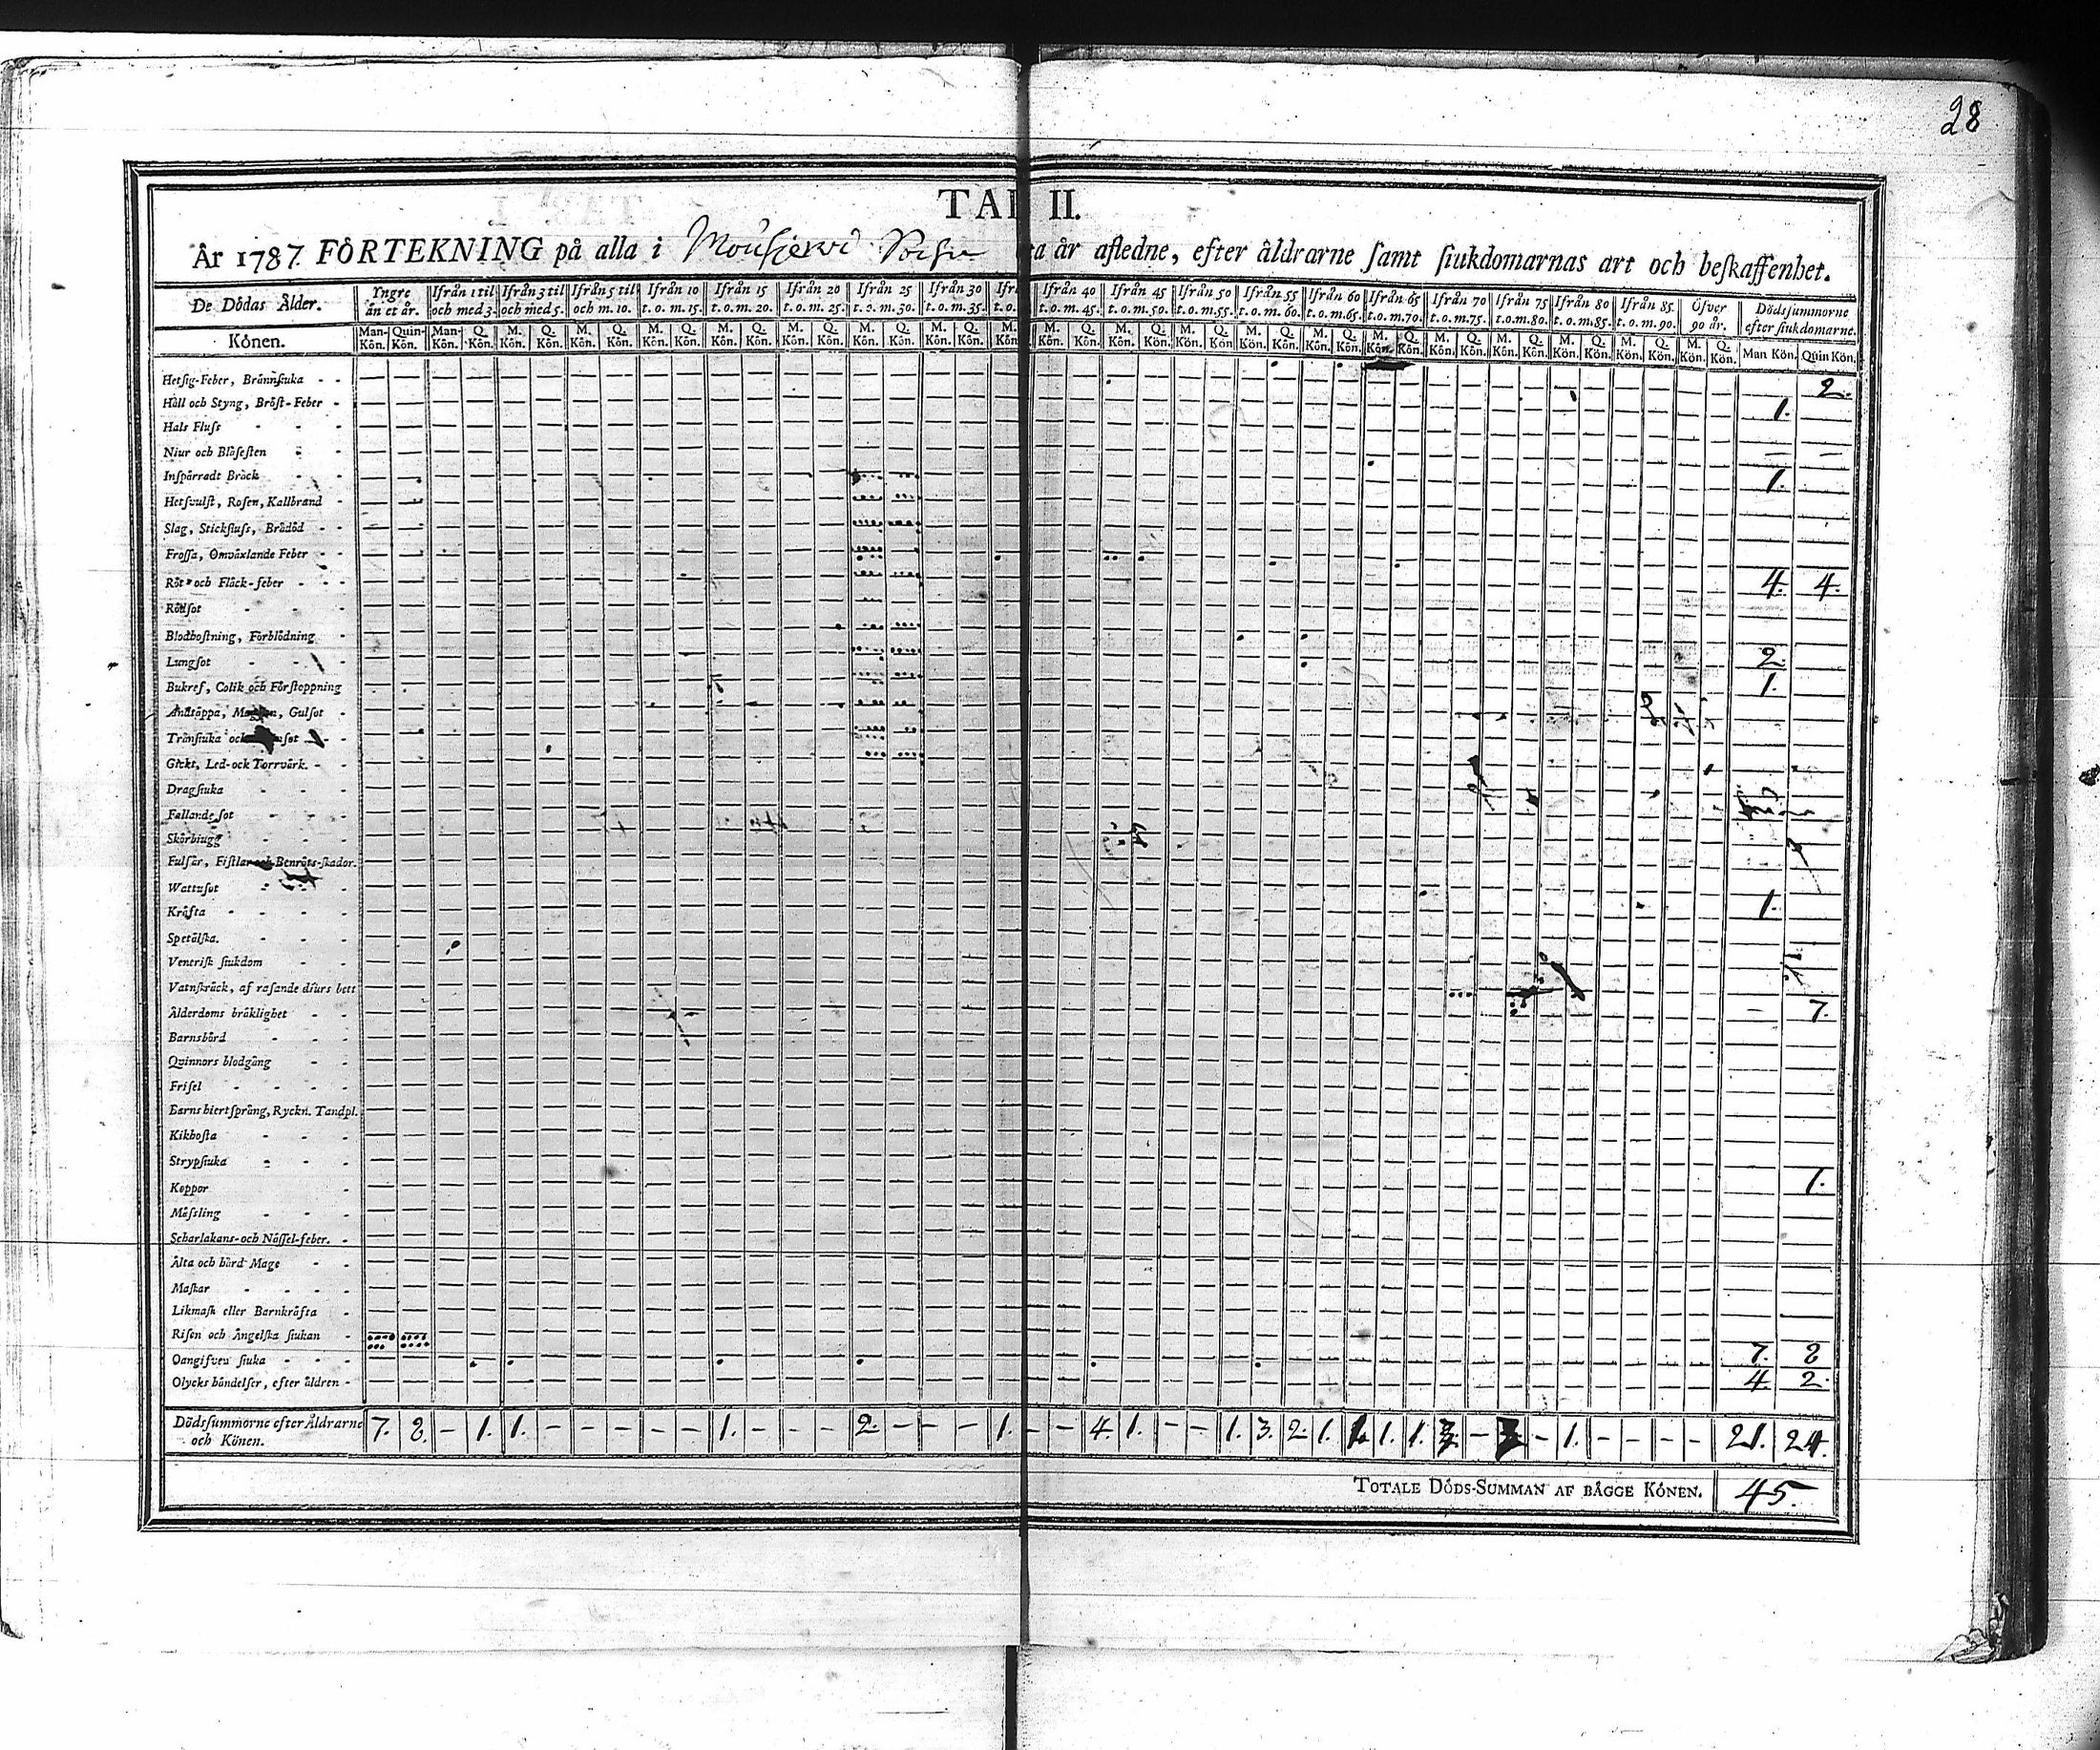 28
TAB II.
År 1787. FÖRTEKNING på alla i ta år afledne, efter åldrarne samt siukdomarnas art och beskaffenhet.
De Dödas Ålder. Yngre än et år. Ifrån 1 til och med 3. Ifrån 3 til och med 5. Ifrån 5 til och m. 10. Ifrån 10 t. o. m. 15. Ifrån 15 t. o. m. 20. Ifrån 20 t. o. m. 25. Ifrån 25 t. o. m. 30. Ifrån 30 t. o. m. 35. Ifrån 40 t. o. m. 45. Ifrån 45 t. o. m. 50. Ifrån 50 t. o. m. 55. Ifrån 55 t. o. m. 60. Ifrån 60 t. o. m. 65. Ifrån 65 t. o. m. 70. Ifrån 70 t. o. m. 75. Ifrån 75 t. o. m. 80. Ifrån 80 t. o. m. 85. Ifrån 85 t. o. m. 90. Öfver 90 år. Dödssummorne efter siukdomarne.
Könen. Man-Kön. Quin-Kön. Man-Kön. Q. Kön. M. Kön. Q. Kön. M. Kön. Q. Kön. M. Kön. Q. Kön. M. Kön. Q. Kön. M. Kön. Q. Kön. M. Kön. Q. Kön. M. Kön. Q. Kön. M. Kön. M. Kön. Q. Kön. M. Kön. Q. Kön. M. Kön. Q. Kön. M. Kön. Q. Kön. M. Kön. Q. Kön. M. Kön. Q. Kön. M. Kön. Q. Kön. M. Kön. Q. Kön. M. Kön. Q. Kön. M. Kön. Q. Kön. M. Kön. Q. Kön. Man Kön. Quin Kön.
Hetsig-Feber, Brännsiuka - - 2.
Håll och Styng, Bröst-Feber - 1.
Hals Fluss
Niur och Blåsesten
Inspärradt Bråck 1.
Hetsvulst, Rosen, Kallbrand
Slag, Stickfluss, Brådöd - -
Frossa, Omväxlande Feber - -
Röt- och Fläck-feber - - - 4. 4.
Rödsot
Blodhostning, Förblödning
Lungsot 2
Bukref, Colik och Förstoppning 1.
Andtäppa, Gulsot
Tränsiuka
Gickt, Led- ock Torrvärk. - -
Dragsiuka
Fallande sot
Skörbiugg
Fulsår, Fistlar och Benröts-skador.
Wattusot 1.
Kräfta
Spetälska.
Venerisk siukdom
Vatnskräck, af rasande diurs bett
Ålderdoms bräklighet - - 7.
Barnsbörd
Quinnors blodgång
Frisel
Barns hiertsprång, Ryckn. Tandpl.
Kikhosta
Strypsiuka
Koppor 1.
Mässling
Scharlakans- och Nässel-feber. -
Älta och hård Mage
Maskar
Likmask eller Barnkräfta
Risen och Ängelska siukan
Oangifven siuka - - - 7. 8
Olycks händelser, efter äldren - 4. 2.
Dödssummorne efter Åldrarne och Könen. 7. 8. - 1. 1. - - - - - 1. - - - 2. - - - 1. - - 4. 1. - - 1. 3. 2. 1. 1. 1. - - 1. - - - - 21. 24.
TOTALE DÖDS-SUMMAN AF BÄGGE KÖNEN. 45.